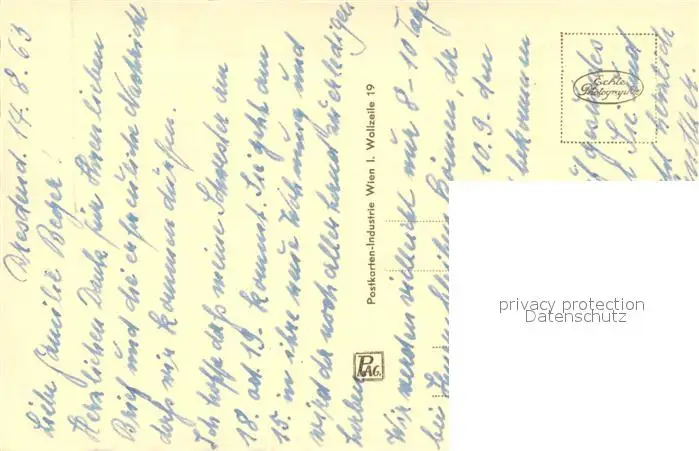 Dresden d. 14.8.63
Liebe Familie Beger!
Herzlichen Dank für Ihren lieben
Brief und die erfreuliche Nachricht
daß wir kommen dürfen.
Ich hoffe daß meine Schwester am
18. od. 19. kommt. Sie geht am
15. in ihre neue Wohnung und
wird da noch allerhand zu erledigen
haben.
Postkarten-Industrie Wien I. Wollzeile 19
PAG.
Wir werden vielleicht nur 8-10 Tage
bei Ihnen bleiben können da
10.9. den
bekommen
gesundes
Sie und
herzlich
Echte
Photographie
privacy protection
Datenschutz